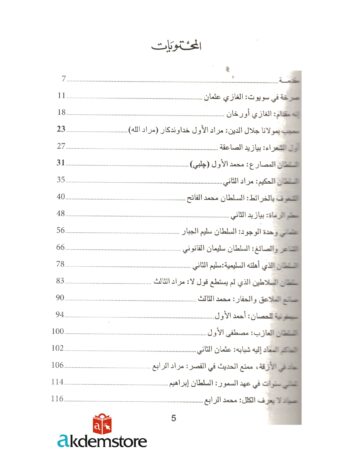 المحتويات
مقدمة ... 7
صرخة في سويوت: الغازي عثمان ... 11
إنه مقدام: الغازي أورخان ... 18
معجب بمولانا جلال الدين: مراد الأول خداوندكار (مراد الله) ... 23
أول الشعراء: بيازيد الصاعقة ... 27
السلطان المصارع: محمد الأول (چلبي) ... 31
السلطان الحكيم: مراد الثاني ... 35
الشغوف بالخرائط: السلطان محمد الفاتح ... 40
معلم الرماة: بيازيد الثاني ... 48
عثماني وحدة الوجود: السلطان سليم الجبار ... 56
الشاعر والصائغ: السلطان سليمان القانوني ... 66
السلطان الذي أهلته السليمية: سليم الثاني ... 78
سلطان السلاطين الذي لم يستطع قول لا: مراد الثالث ... 83
صانع الملاعق والحفار: محمد الثالث ... 90
سيمفونية للحصان: أحمد الأول ... 94
السلطان العازب: مصطفى الأول ... 100
الحاكم المعاد إليه شبابه: عثمان الثاني ... 102
جاد في الأزقة، ممتع الحديث في القصر: مراد الرابع ... 106
ثماني سنوات في عهد السمور: السلطان إبراهيم ... 114
صياد لا يعرف الكلل: محمد الرابع ... 116
5
akdemstore